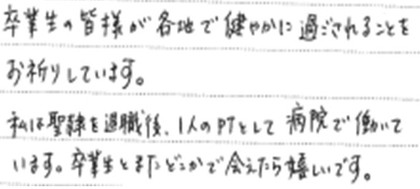 卒業生の皆様が各地で健やかに過ごされることを
お祈りしています。
私は聖隷を退職後、1人のPTとして病院で働いて
います。卒業生とまたどこかで会えたら嬉しいです。